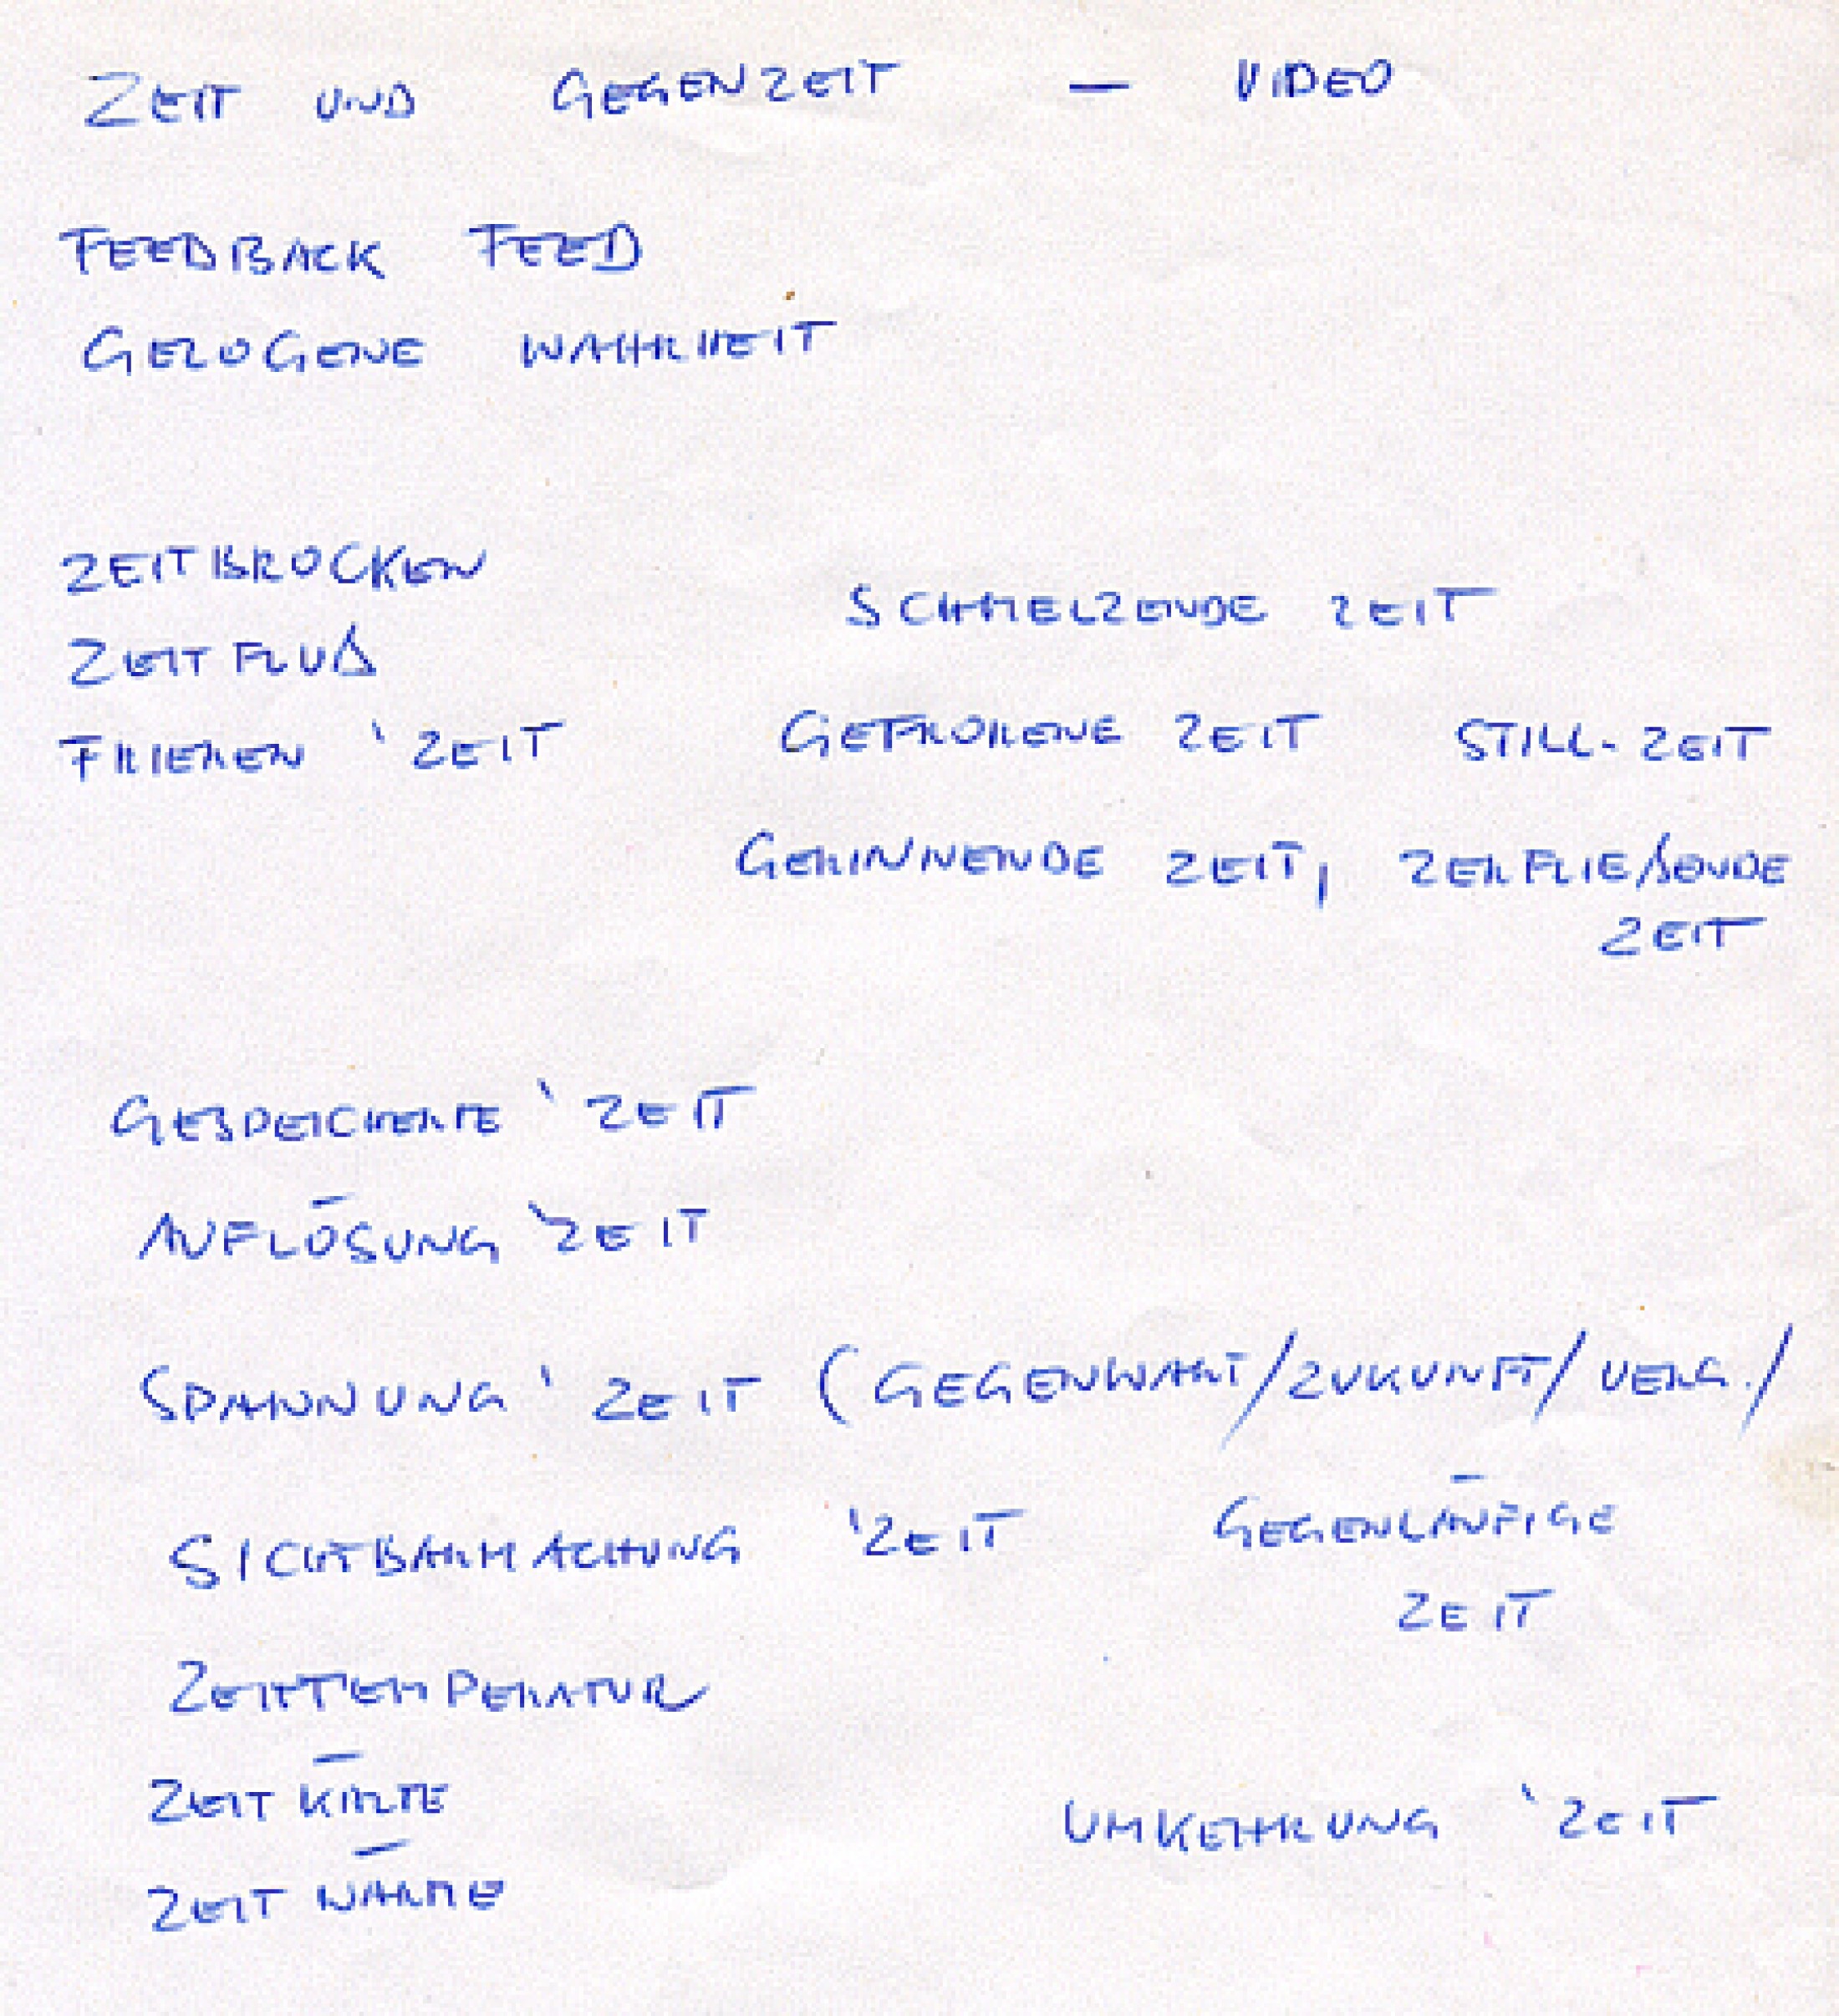 ZEIT UND GEGENZEIT — VIDEO
FEEDBACK FEED
GELOGENE WAHRHEIT
ZEITBROCKEN
SCHMELZENDE ZEIT
ZEITFLUß
FRIEREN ‵ZEIT
GEFRORENE ZEIT STILL-ZEIT
GERINNENDE ZEIT, ZERFLIEßENDE
ZEIT
GESPEICHERTE ‵ZEIT
AUFLÖSUNG ‵ZEIT
SPANNUNG ‵ZEIT (GEGENWART/ZUKUNFT/VERG./
SICHTBARMACHUNG ‵ZEIT
GEGENLÄUFIGE
ZEIT
ZEITTEMPERATUR
ZEITKÄLTE
UMKEHRUNG ‵ZEIT
ZEITWÄRME